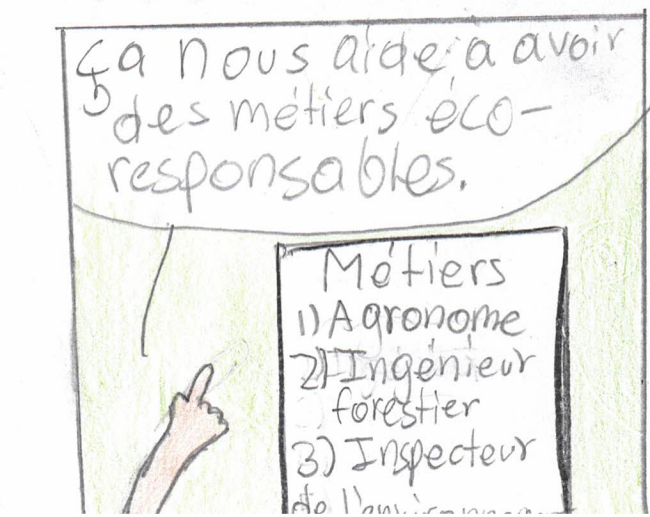 ça nous aide à avoir
des métiers éco-
responsables.
Métiers
1) Agronome
2) Ingénieur
forestier
3) Inspecteur